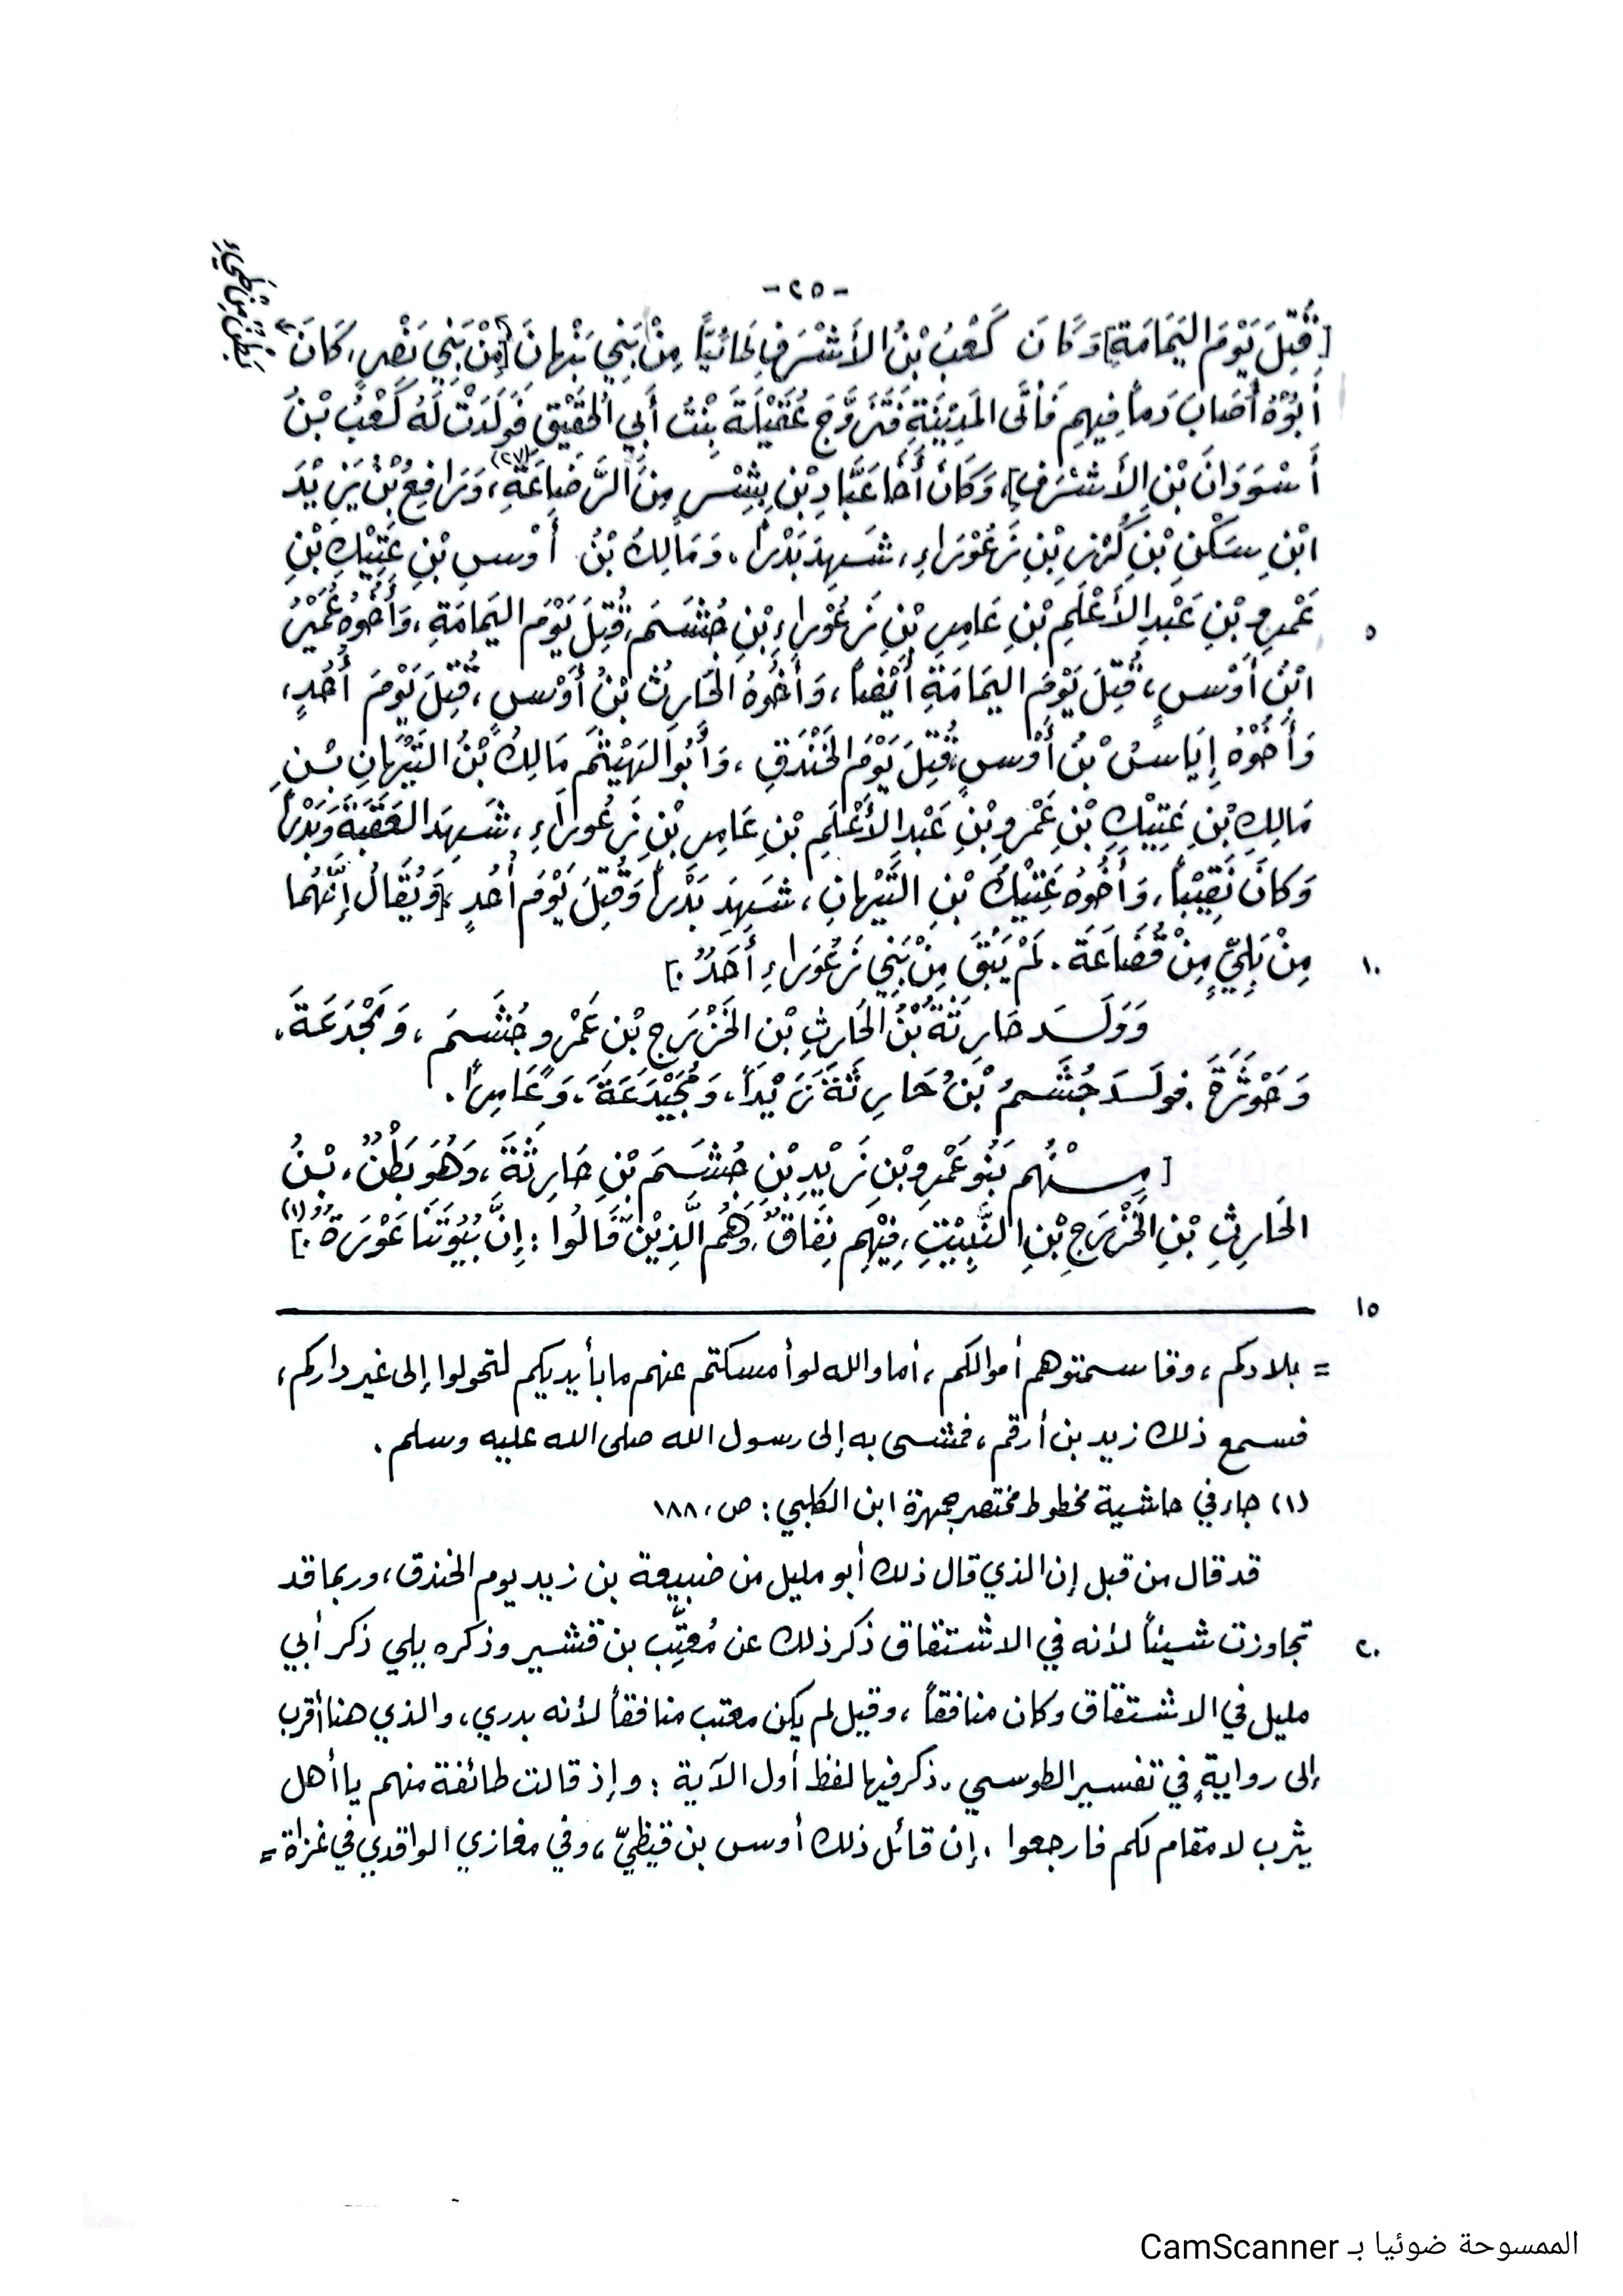 -٢٥-
[قُتِلَ يَوْمَ اليَمَامَةِ] وَكَانَ كَعْبُ بْنُ الأَشْرَفِ طَائِيًّا مِنْ بَنِي نَبْهَانَ [مِنْ بَنِي نَصْرٍ، كَانَ
بَطْنٌ مِنْ طَيِّءٍ
أَبُوْهُ أَصَابَ دَماً فِيهِم فَأَتَى المَدِيْنَةِ فَتَزَوَّجَ عُقَيْلَةَ بِنْتُ أَبِي الحُقَيْقِ فَوَلَدَتْ لَهُ كَعْبُ بْنُ
أَسْوَدَانَ بْنِ الأَشْرَفِ]، وَكَانَ أَخَا عَبَّادِ بْنِ بِشْرٍ مِنَ الرَّضَاعَةِ(٢٧)، وَرَافِعُ بْنُ يَزِيْدَ
ابْنِ سَكْنِ بْنِ كُرْزِ بْنِ زَعُوْرَاءِ، شَهِدَ بَدْراً، وَمَالِكُ بْنُ أَوْسِ بْنِ عَتِيْكِ بْنِ
عَمْرِو بْنِ عَبْدِ الأَعْلَمِ بْنِ عَامِرِ بْنِ زَعُوْرَاءِ بْنِ جُشَمَ، قُتِلَ يَوْمَ اليَمَامَةِ، وَأَخُوهُ عُمَيْرُ
٥
ابْنُ أَوْسٍ، قُتِلَ يَوْمَ اليَمَامَةِ أَيْضاً، وَأَخُوهُ الحَارِثُ بْنُ أَوْسٍ، قُتِلَ يَوْمَ أُحُدٍ،
وَأَخُوْهُ إِيَاسُ بْنُ أَوْسٍ، قُتِلَ يَوْمَ الخَنْدَقِ، وَأَبُو الهَيْثَمِ مَالِكُ بْنُ التَّيْهَانِ بْنِ
مَالِكِ بْنِ عَتِيْكِ بْنِ عَمْرِو بْنِ عَبْدِ الأَعْلَمِ بْنِ عَامِرِ بْنِ زَعُورَاءِ، شَهِدَ العَقَبَةَ وَبَدْراً
وَكَانَ نَقِيْباً، وَأَخُوهُ عَتِيْكُ بْنِ التَّيْهَانِ، شَهِدَ بَدْراً وَقُتِلَ يَوْمَ أُحُدٍ، [وَيُقَالُ إِنَّهُما
مِنْ بَلِيٍّ مِنْ قُضَاعَةَ. لَمْ يَبْقَ مِنْ بَنِي زَعُوَراءِ أَحَدٌ.]
١٠
وَوَلَـد حَارِثَةُ بْنُ الحَارِثِ بْنِ الخَزْرَجِ بْنِ عَمْرٍو جُشَـمَ، وَمَجْدَعَةَ،
وَحَوْثَرَةَ. فولَـدَ جُشَـمُ بْنُ حَارِثَةَ زَيْداً، وَمُجَيْدَعَةَ، وَعَامِراً.
[مِـنْهُم بَنُو عَمْرِو بْنِ زَيْدِ بْنِ جُشَـمَ بْنِ حَارِثَةَ، وَهُوَ بَطْنٌ، بْـنُ
الحَارِثِ بْنِ الخَزْرَجِ بْنِ النَّبِيْتِ، فِيْهِم نِفَاقٌ، وَهُم الَّذِيْنَ قَالُوا: إِنَّ بُيُوتَنَا عَوْرَةٌ.](١)
١٥
= بلادكم، وقاسمتوهم أموالكم، أما والله لو أمسكتم عنهم ما بأيديكم لتحولوا إلى غير داركم،
فسمع ذلك زيد بن أرقم، فمشى به إلى رسول الله صلى الله عليه وسلم.
(١) جاء في حاشية مخطوط مختصر جمهرة ابن الكلبي: ص، ١٨٨
قد قال من قبل إن الذي قال ذلك أبو مليل من ضبيعة بن زيد يوم الخندق، وربما قد
تجاوزت شيئاً لأنه في الاشتقاق ذكر ذلك عن مُعتِّب بن قشير وذكره يلي ذكر أبي
٢٠
مليل في الاشتقاق وكان منافقاً، وقيل لم يكن معتب منافقاً لأنه بدري، والذي هنا أقرب
إلى روايةٍ في تفسير الطوسي. ذكر فيها لفظ أول الآية: وإذ قالت طائفة منهم يا أهل
يثرب لا مقام لكم فارجعوا. إن قائل ذلك أوس بن قيظيّ، وفي مغازي الواقدي في غزاة =
الممسوحة ضوئيا بـ CamScanner